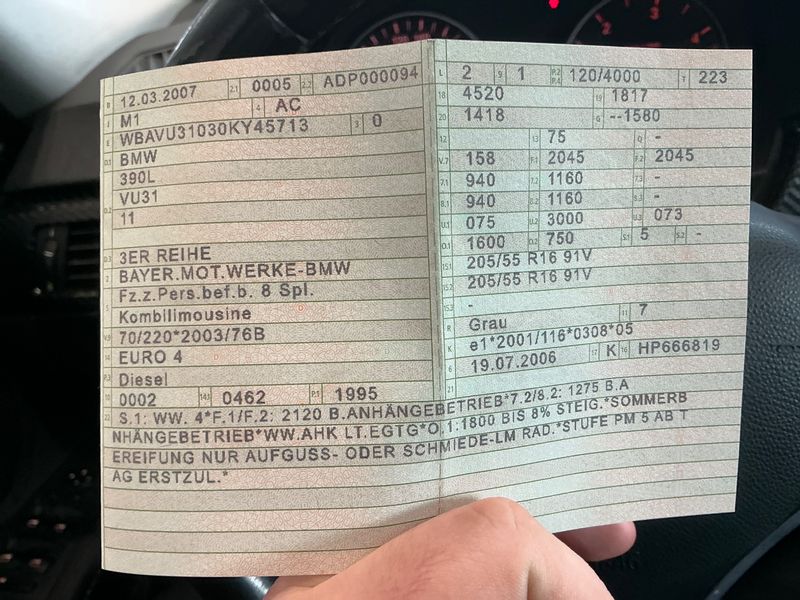 B 12.03.2007 2.1 0005 2.2 ADP000094
J M1 4 AC
E WBAVU31030KY45713 3 0
D.1 BMW
390L
D.2 VU31
11
D.3 3ER REIHE
2 BAYER.MOT.WERKE-BMW
5 Fz.z.Pers.bef.b. 8 Spl.
Kombilimousine
V.9 70/220*2003/76B
14 EURO 4
P.3 Diesel
10 0002 14.1 0462 P.1 1995
L 2 9 1 P.2 P.4 120/4000 T 223
18 4520 19 1817
20 1418 G --1580
12 13 75 Q -
V.7 158 F.1 2045 F.2 2045
7.1 940 7.2 1160 7.3 -
8.1 940 8.2 1160 8.3 -
U.1 075 U.2 3000 U.3 073
O.1 1600 O.2 750 S.1 5 S.2 -
15.1 205/55 R16 91V
15.2 205/55 R16 91V
15.3 -
R Grau 11 7
K e1*2001/116*0308*05
6 19.07.2006 17 K 16 HP666819
21
22 S.1: WW. 4*F.1/F.2: 2120 B.ANHÄNGEBETRIEB*7.2/8.2: 1275 B.A
NHÄNGEBETRIEB*WW.AHK LT.EGTG*O.1:1800 BIS 8% STEIG.*SOMMERB
EREIFUNG NUR AUFGUSS- ODER SCHMIEDE-LM RAD.*STUFE PM 5 AB T
AG ERSTZUL.*